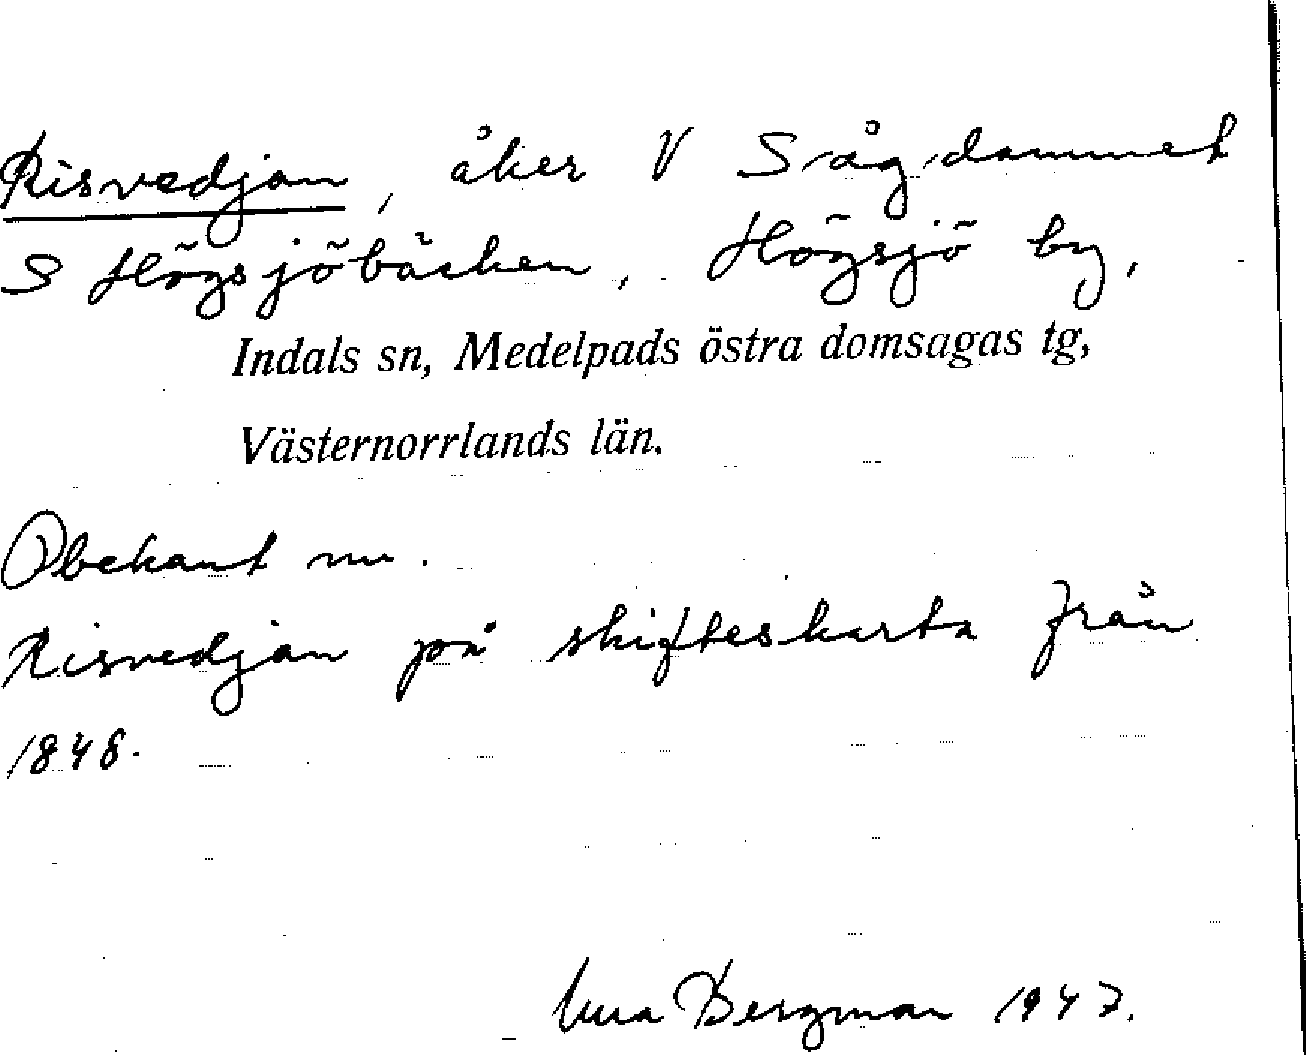 Risvedjan, åker V Sågdammet
S Högsjöbäcken, Högsjö by,
Indals sn, Medelpads östra domsagas tg,
Västernorrlands län.
Obekant nu.
Risvedjan på skifteskarta från
1848.
Bergman 1947.